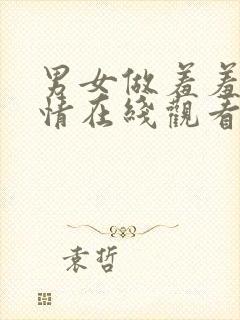 男女做羞羞
情在綫觀看
袁哲